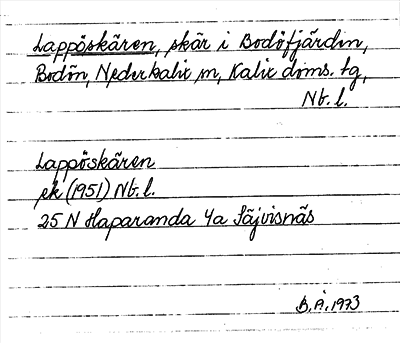 Lappöskären, skär i Bodöfjärden,
Bodön, Nederkalix sn, Kalix doms. tg,
Nb. l.
Lappöskären
ek (1951) Nb. l.
25 N Haparanda 4a Säjvisnäs
B. Å. 1973